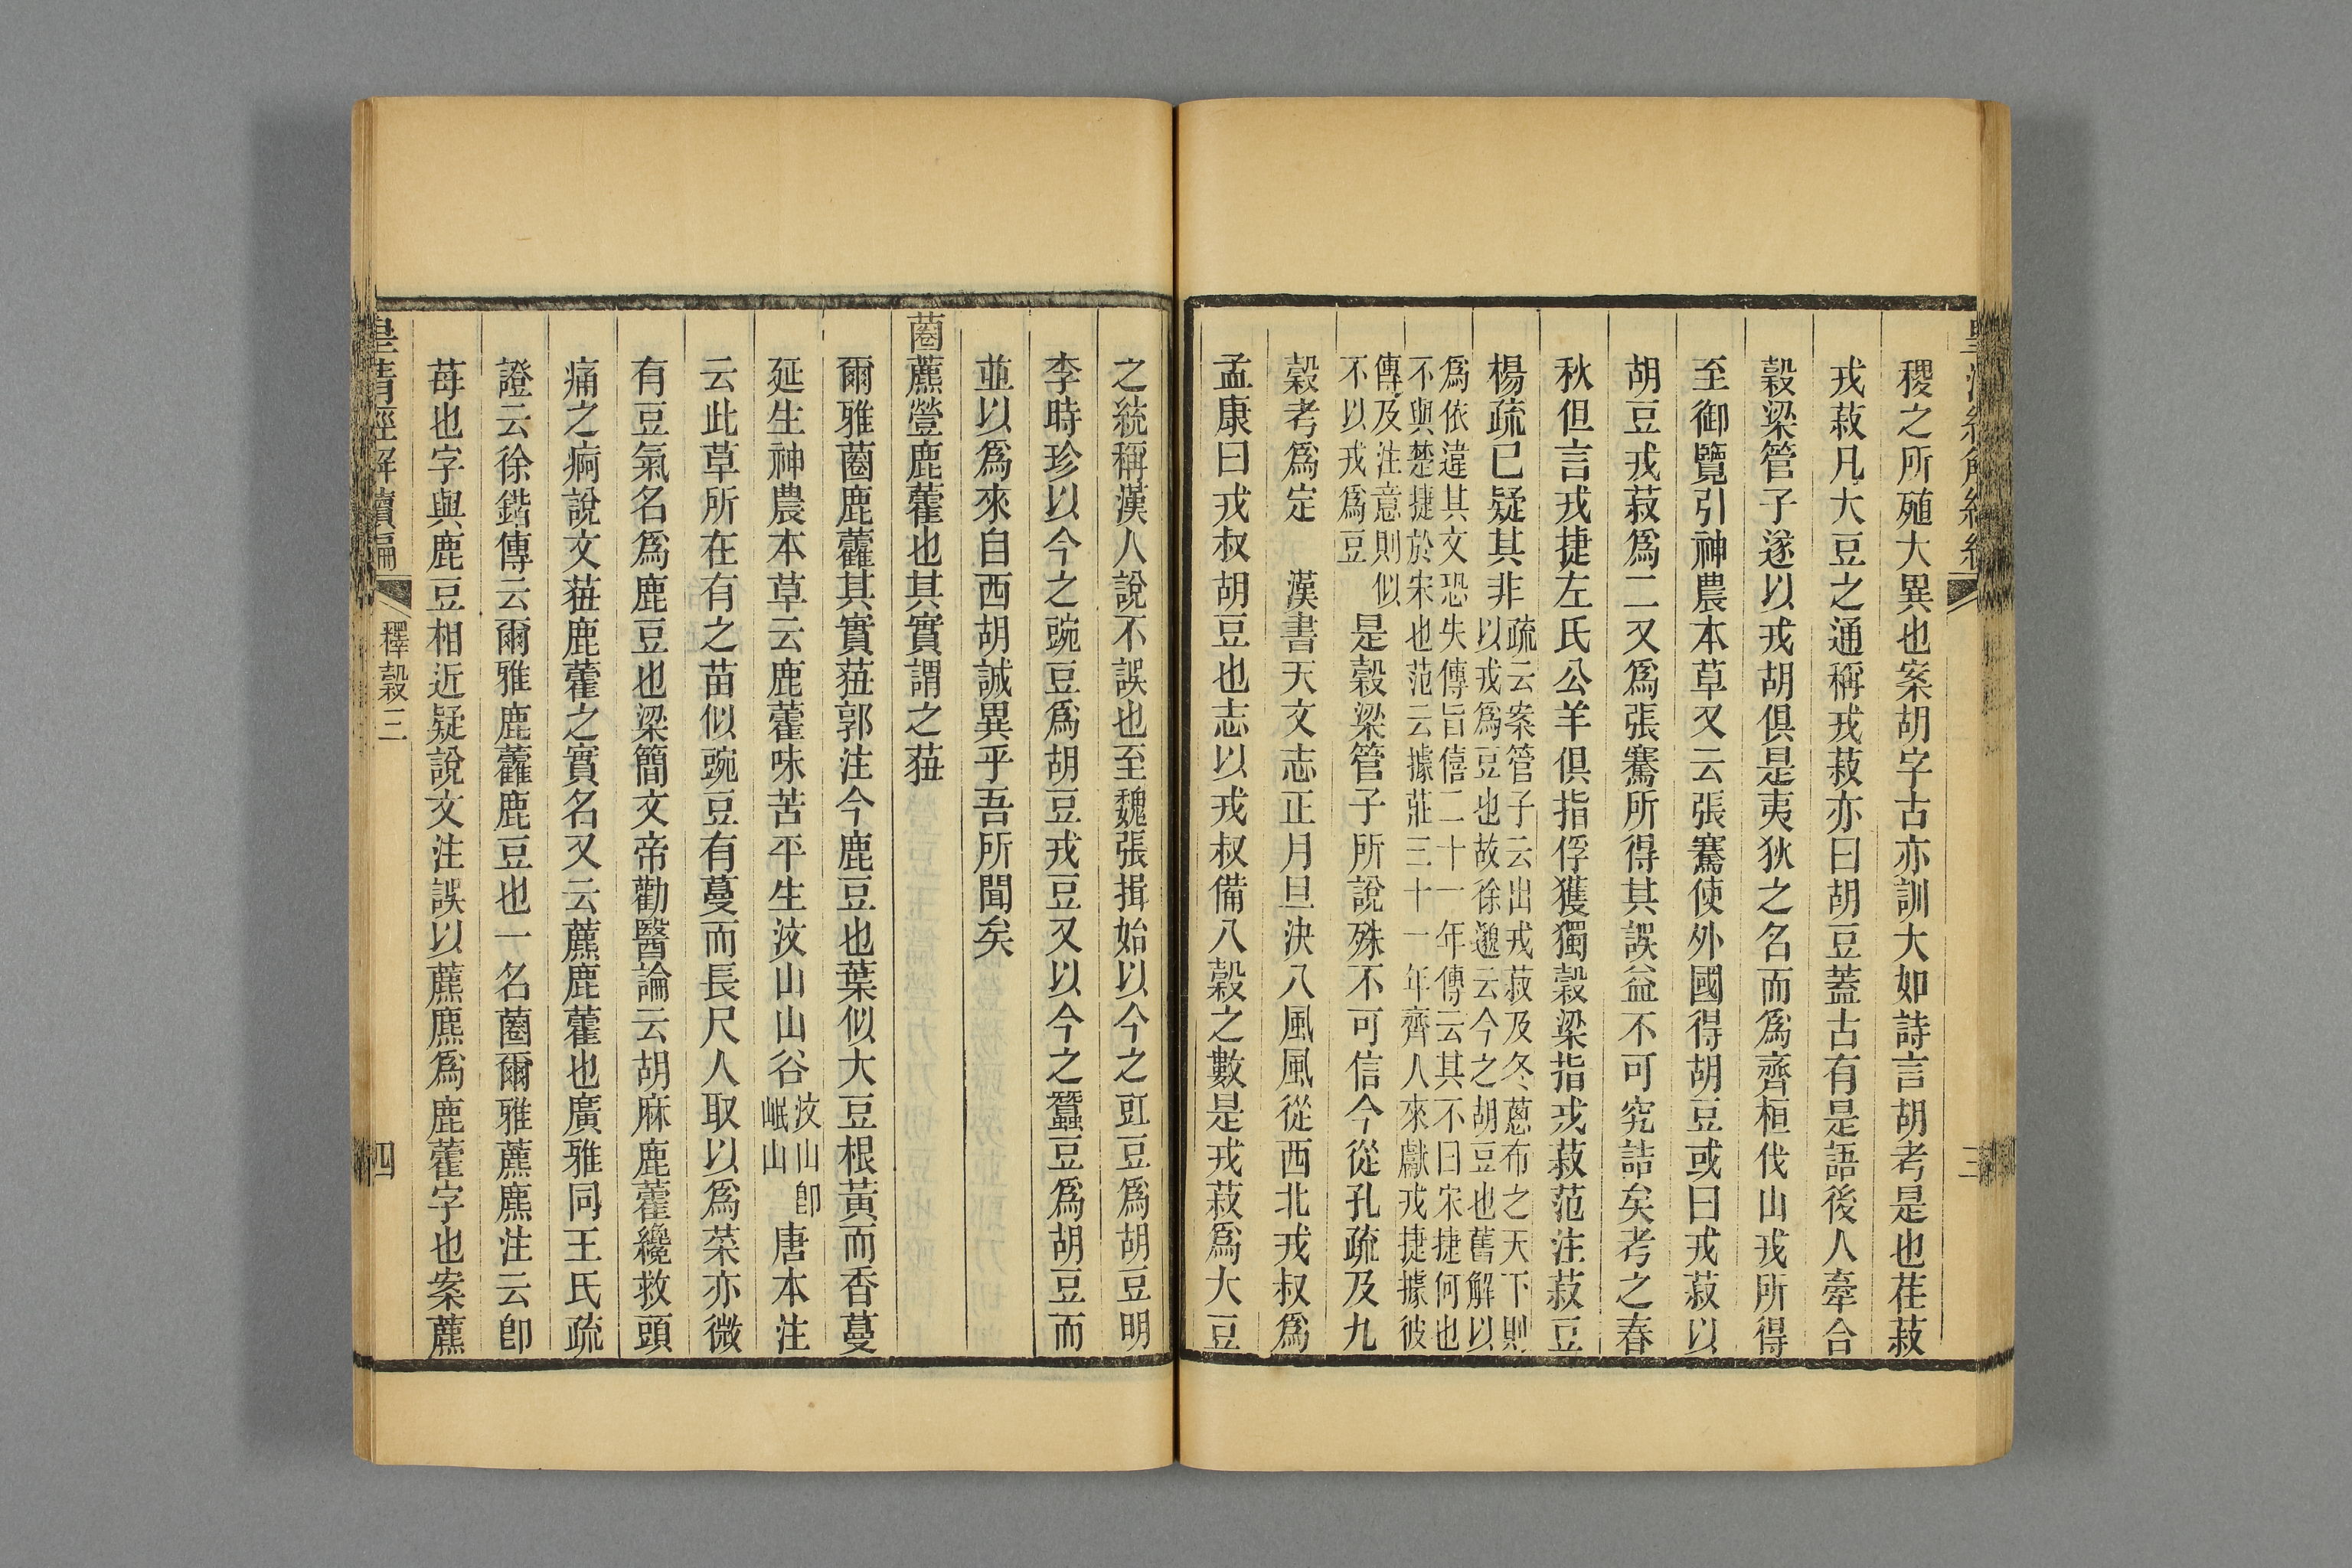 稷之所殖大異也案胡字古亦訓大如詩言胡考是也荏菽
戎菽凡大豆之通稱戎菽亦曰胡豆蓋古有是語後人牽合
穀梁管子遂以戎胡俱是夷狄之名而爲齊桓伐山戎所得
至御覽引神農本草又云張騫使外國得胡豆或曰戎菽以
胡豆戎菽爲二又爲張騫所得其誤益不可究詰矣考之春
秋但言戎捷左氏公羊俱指俘獲獨穀梁指戎菽范注菽豆
楊疏已疑其非
疏云案管子云出戎菽及冬蔥布之天下則
以戎爲豆也故徐邈云今之胡豆也舊解以
爲依違其文恐失傳旨僖二十一年傳云其不曰宋捷何也
不與楚捷於宋也范云據莊三十一年齊人來獻戎捷據彼
傳及注意則似
不以戎爲豆
是穀梁管子所說殊不可信今從孔疏及九
穀考爲定　漢書天文志正月旦決八風風從西北戎叔爲
孟康曰戎叔胡豆也志以戎叔備八穀之數是戎菽爲大豆
之統稱漢人說不誤也至魏張揖始以今之豇豆爲胡豆明
李時珍以今之豌豆爲胡豆戎豆又以今之蠶豆爲胡豆而
並以爲來自西胡誠異乎吾所聞矣
蔨藨蓥鹿藿也其實謂之莥
爾雅蔨鹿藿其實莥郭注今鹿豆也葉似大豆根黃而香蔓
延生神農本草云鹿藿味苦平生汶山山谷
汶山卽
岷山
唐本注
云此草所在有之苗似豌豆有蔓而長尺人取以爲菜亦微
有豆氣名爲鹿豆也梁簡文帝勸醫論云胡麻鹿藿纔救頭
痛之痾說文莥鹿藿之實名又云藨鹿藿也廣雅同王氏疏
證云徐鍇傳云爾雅鹿藿鹿豆也一名蔨爾雅藨麃注云卽
莓也字與鹿豆相近疑說文注誤以藨麃爲鹿藿字也案藨
皇清經解續編
釋穀三
四